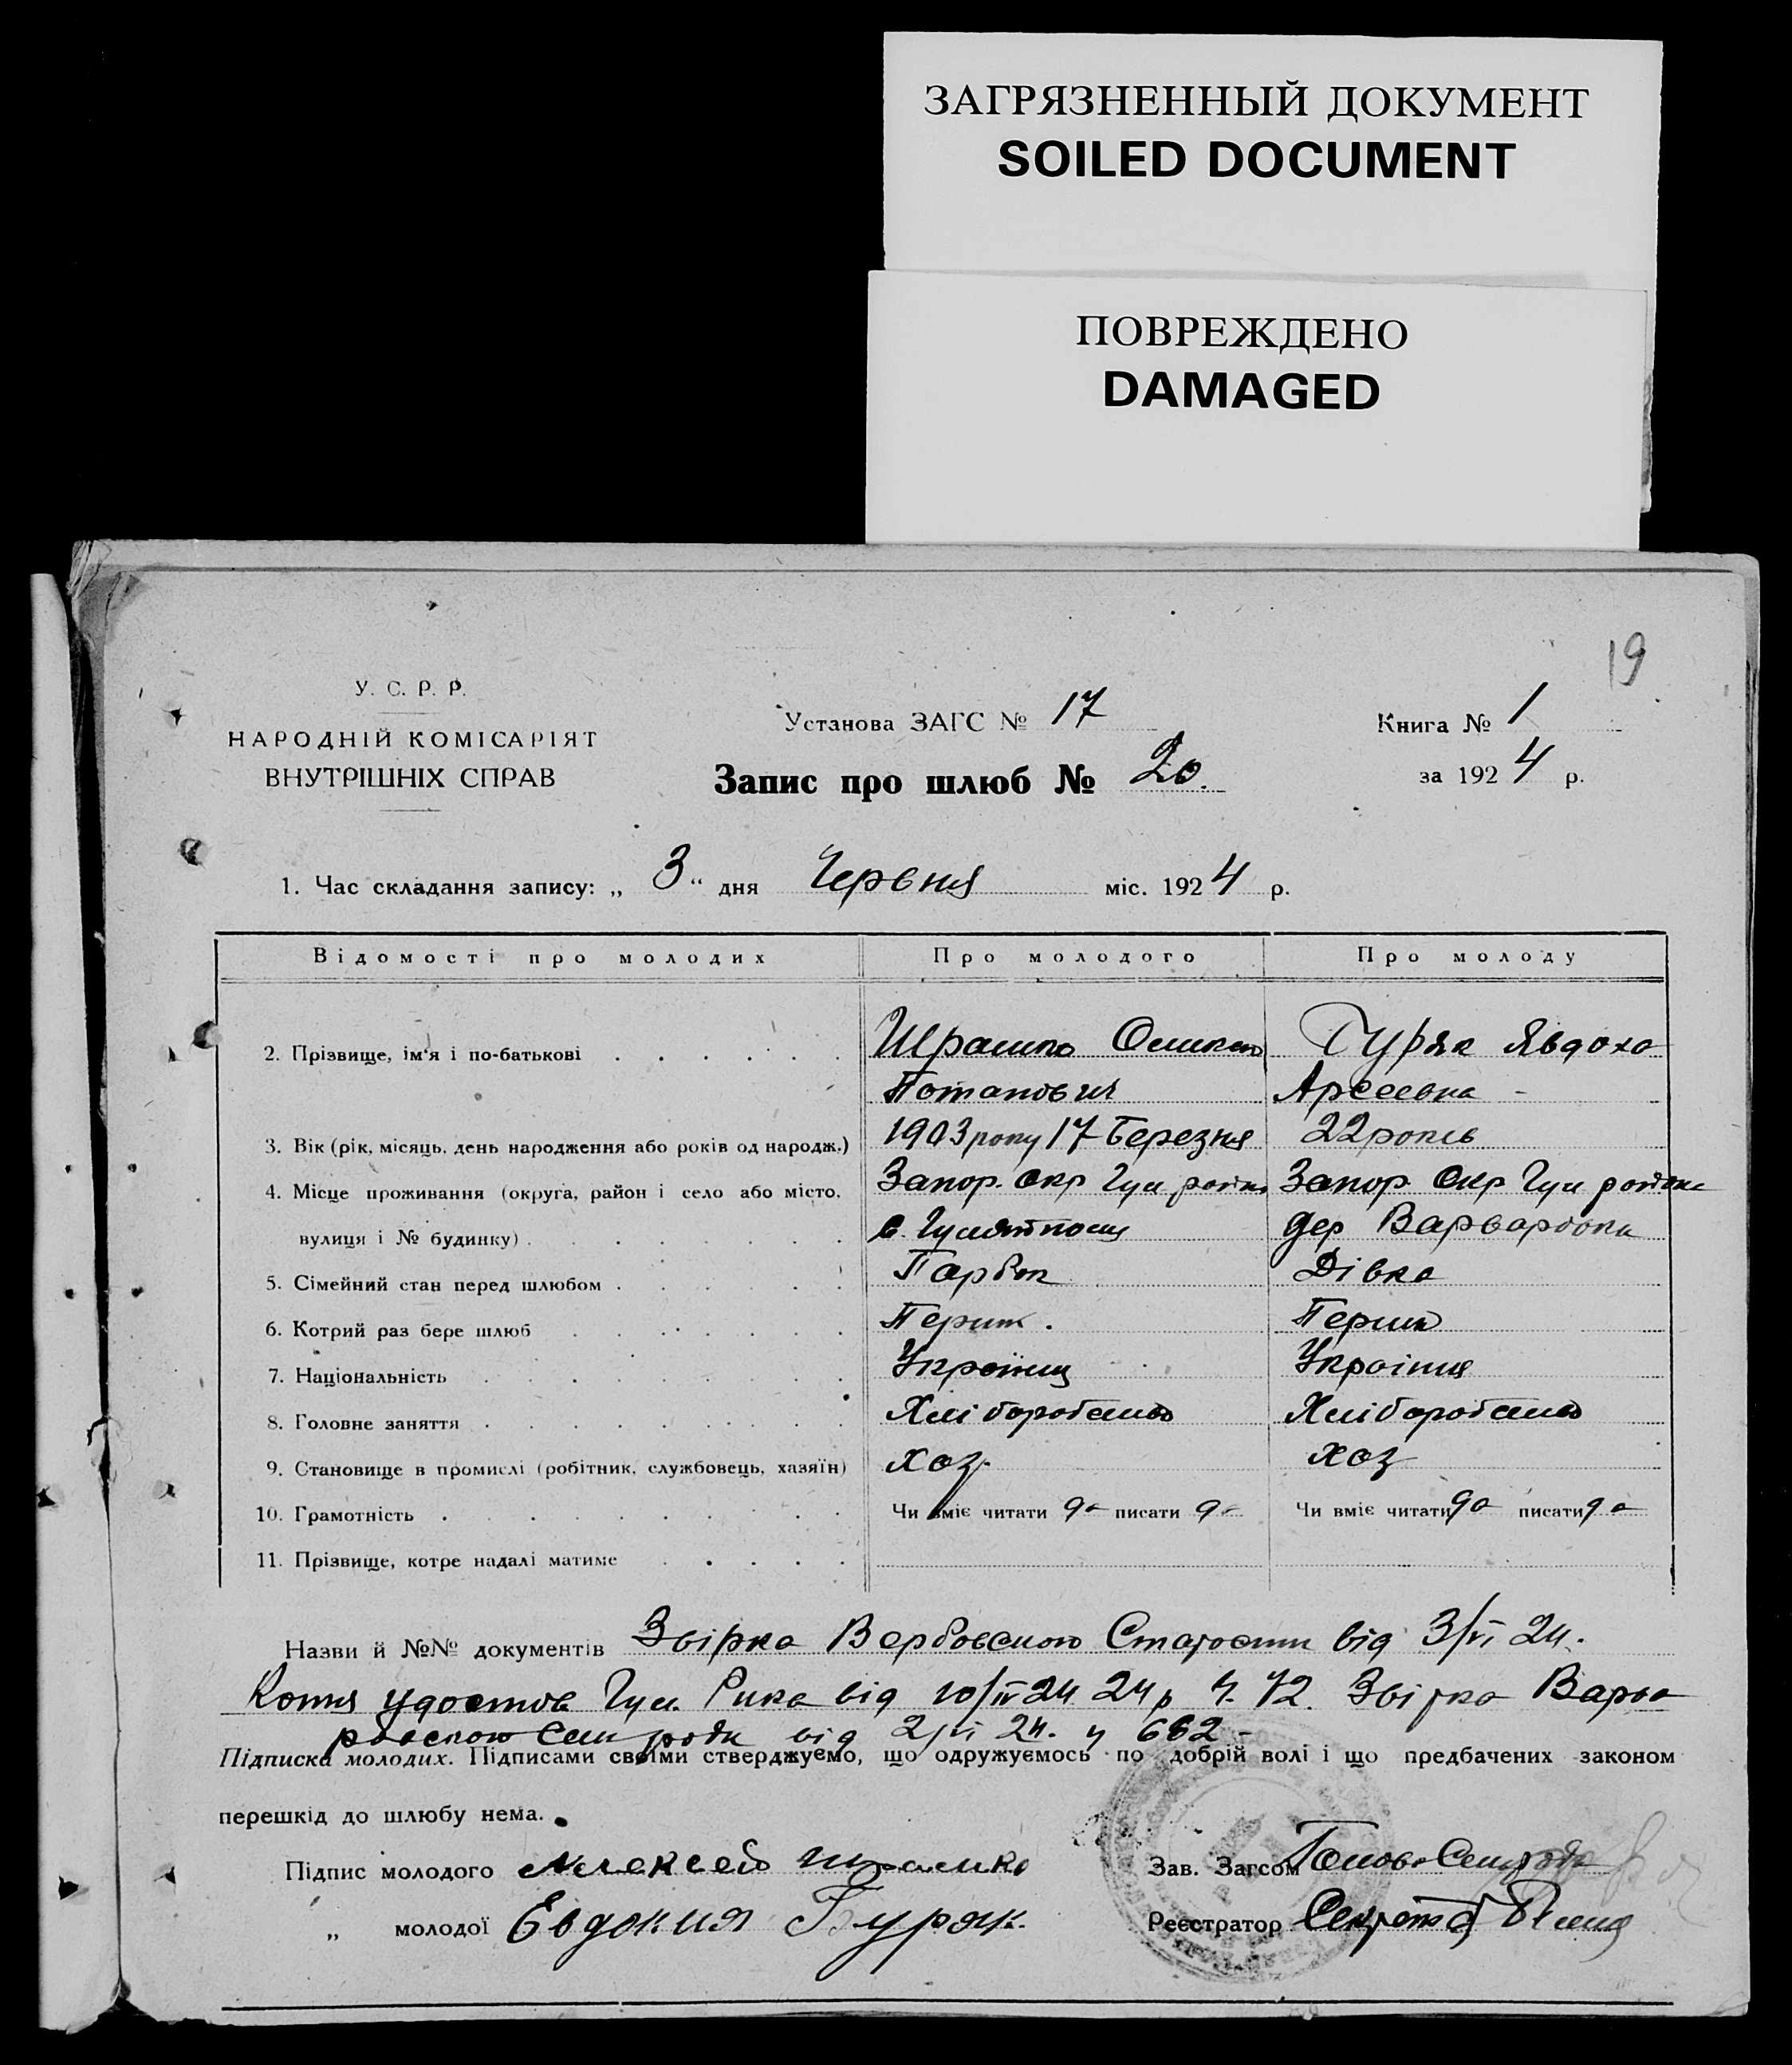 ЗАГРЯЗНЕННЫЙ ДОКУМЕНТ
SOILED DOCUMENT
ПОВРЕЖДЕНО
DAMAGED
19
У. С. Р. Р.
НАРОДНІЙ КОМІСАРІЯТ
ВНУТРІШНІХ СПРАВ
Установа ЗАГС № 17
Запис про шлюб № 20.
Книга № 1
за 1924 р.
1. Час складання запису: „ 3 “ дня Червня міс. 1924 р.
Відомості про молодих Про молодого Про молоду
2. Прізвище, ім'я і по-батькові Явдоха
Потапович
3. Вік (рік, місяць, день народження або років од народж.) 1903 року 17 Березня 22 років
4. Місце проживання (округа, район і село або місто, Запор. окр Гул район Запор. Окр Гул район
вулиця і № будинку) дер Варваровка
5. Сімейний стан перед шлюбом Парбок Дівка
6. Котрий раз бере шлюб Перши. Перши
7. Національність Українц Українця
8. Головне заняття Хліборобство Хліборобство
9. Становище в промислі (робітник, службовець, хазяїн) хаз. хаз
10. Грамотність Чи вміє читати да писати да Чи вміє читати да писати да
11. Прізвище, котре надалі матиме
Назви й №№ документів Звірка від 3/VI 24.
Копия Гул. Рика від 10/IV 24 24 р ч. 72. Звірка Варва
від 2/VI 24. ч 662 -
Підписка молодих. Підписами своїми стверджуємо, що одружуємось по добрій волі і що предбачених законом
перешкід до шлюбу нема.
Підпис молодого Алексей Шрамко
Зав. Загсом Голова
„ молодої Евдокия Буряк.
Реєстратор Секретар